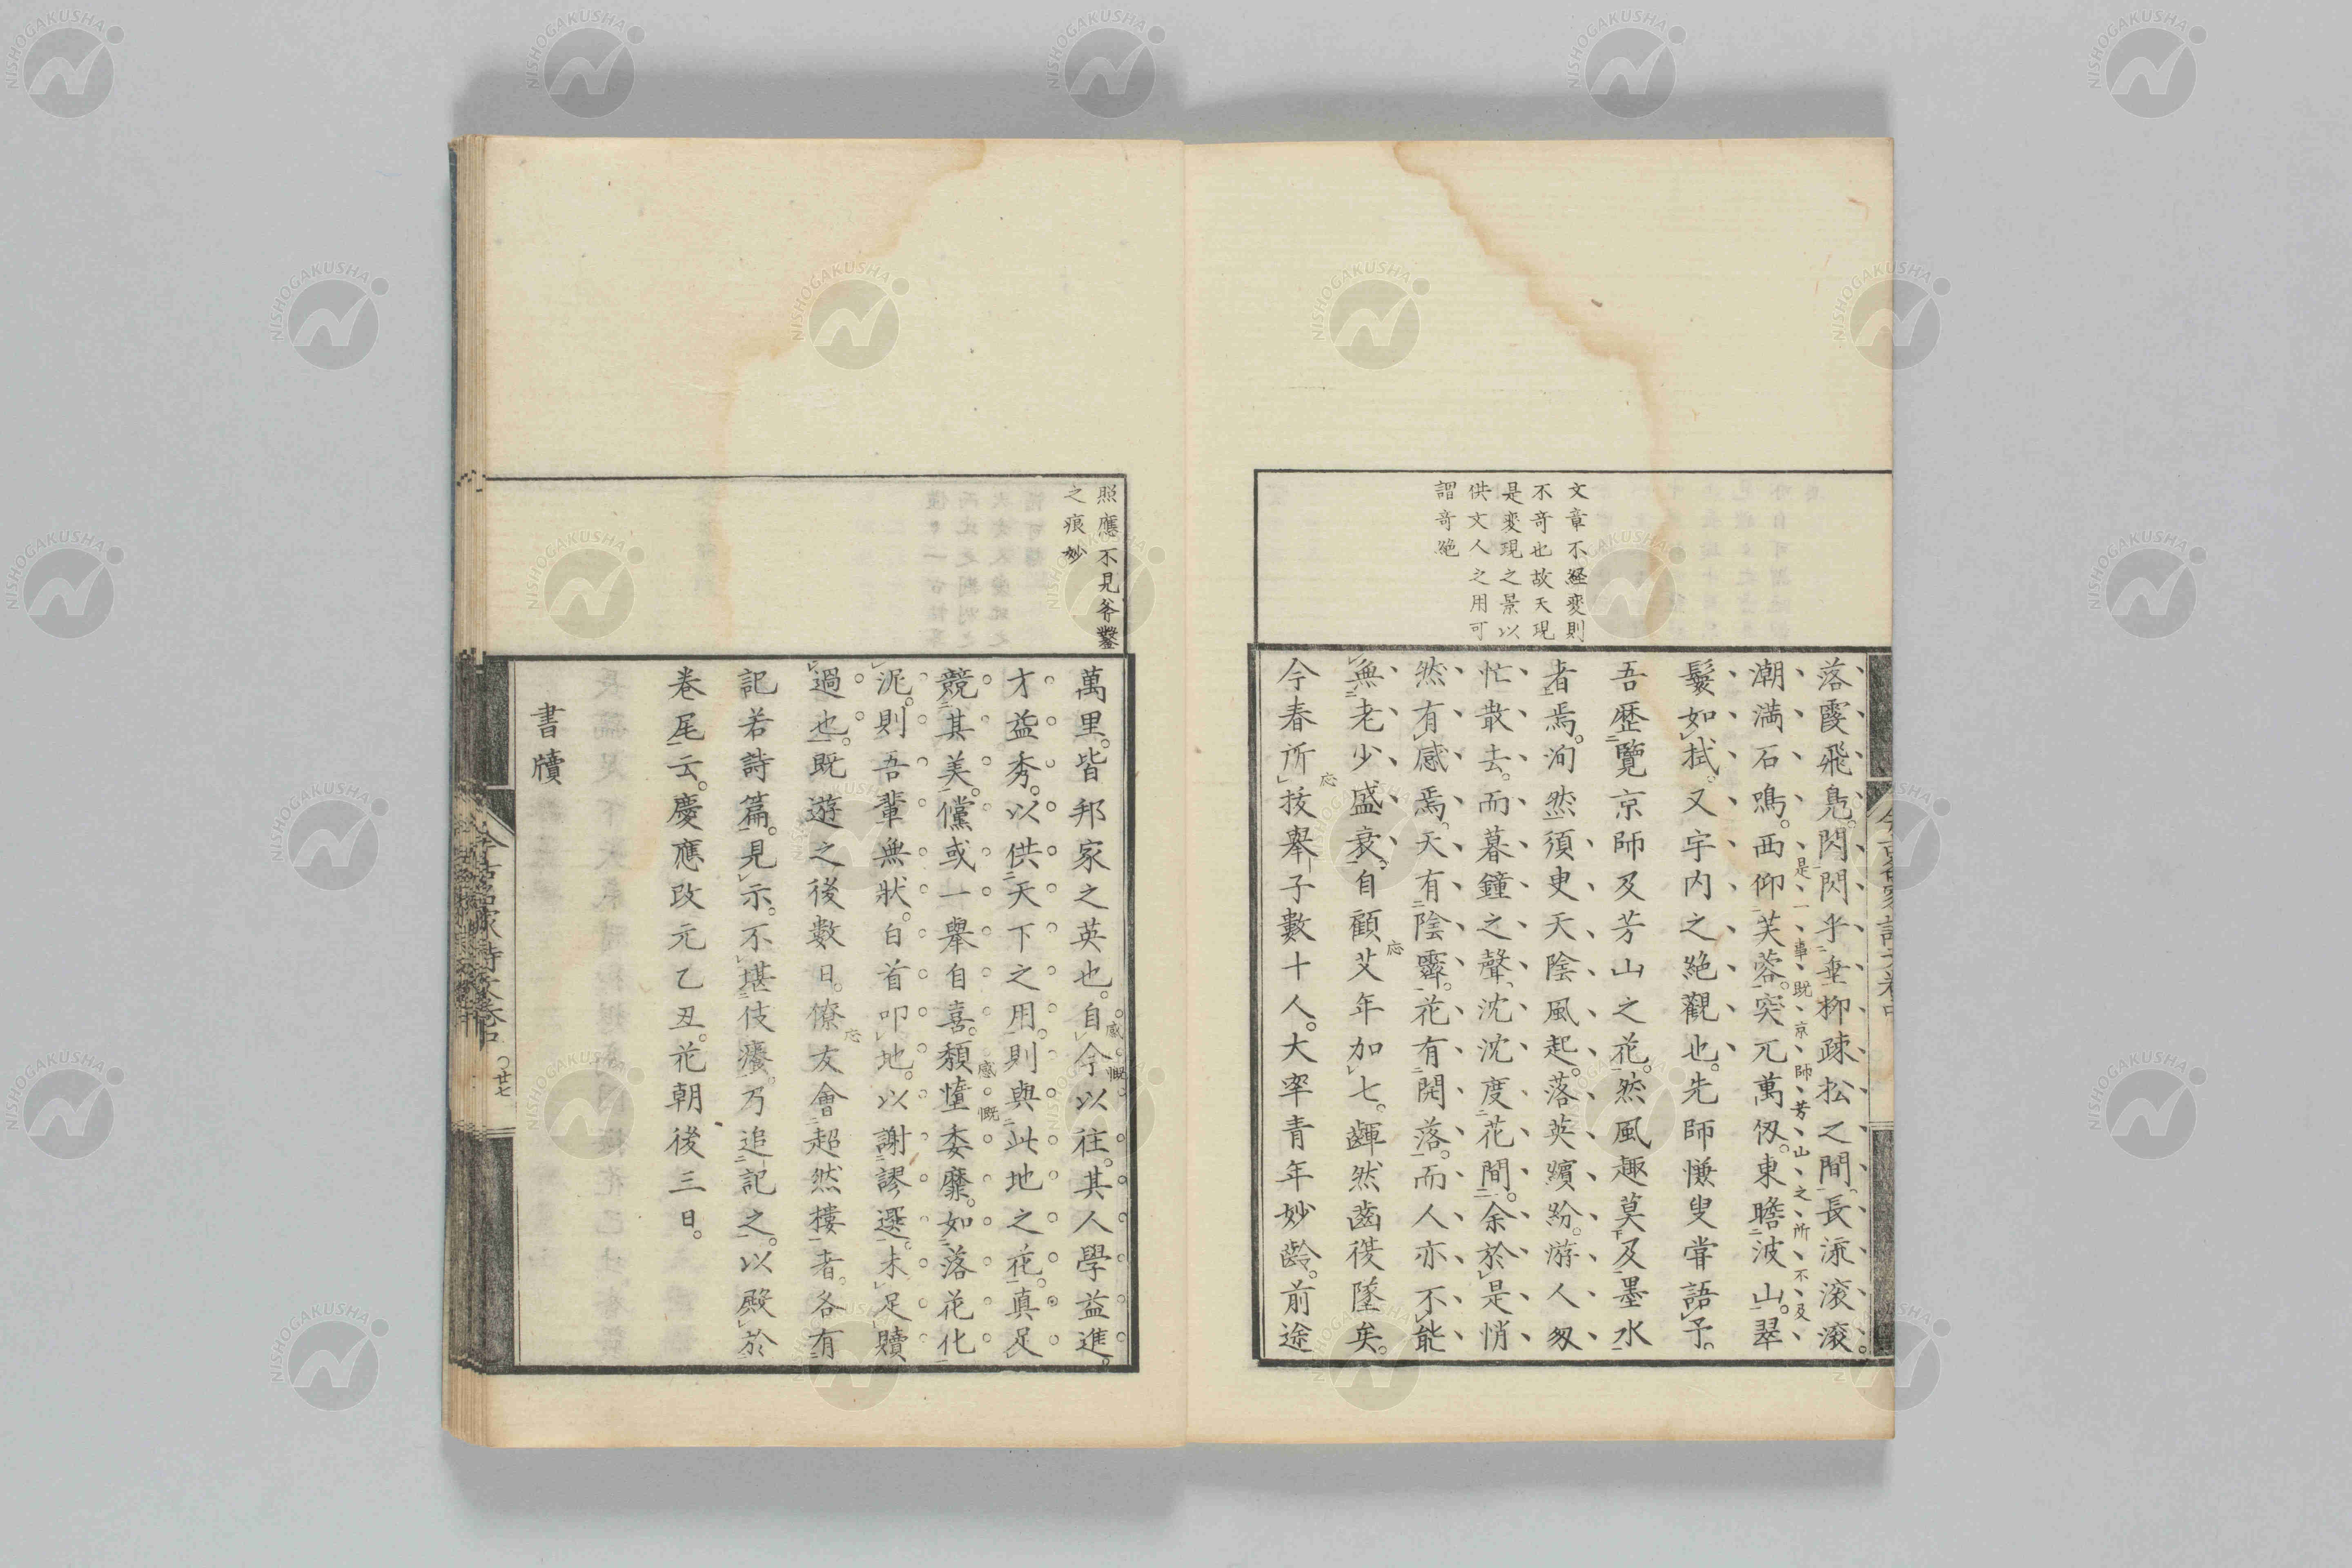 文章不経変則
不奇也故天現
是変現之景以
供文人之用可
謂奇絶
落霞飛鳧。閃閃乎垂柳疎松之間。長流滾滾。
潮満石鳴。西仰芙蓉。突兀萬仭。東瞻波山。翠
是一事既京師芳山之所不及
鬟如拭。又宇内之絶觀也。先師慊叟甞語予。
吾歴覽京師及芳山之花。然風趣莫及墨水
者焉。洵然。須臾天陰風起。落英繽紛。游人匆
忙散去。而暮鐘之聲。沈沈度花間。余於是悄
然有感焉。天有陰霽。花有開落。而人亦不能
無老少盛衰。自顧艾年加七。齳然齒徙墜矣。
応
今春所抜舉子數十人。大率青年妙齡。前途
応
照應不見斧鑿
之痕妙
萬里。皆邦家之英也。自今以往。其人學益進。
感慨
才益秀。以供天下之用。則與此地之花。真足
競其美。儻或一舉自喜。頽憻委靡。如落花化
感慨
泥。則吾輩無狀。白首叩地。以謝謬選。未足贖
過也。既遊之後數日。僚友會超然樓者。各有
応
記若詩篇。見示。不堪伎癢。乃追記之。以殿於
巻尾云。慶應改元乙丑。花朝後三日。
書牘
今古名家詩文巻中
廿七
NISHOGAKUSHA